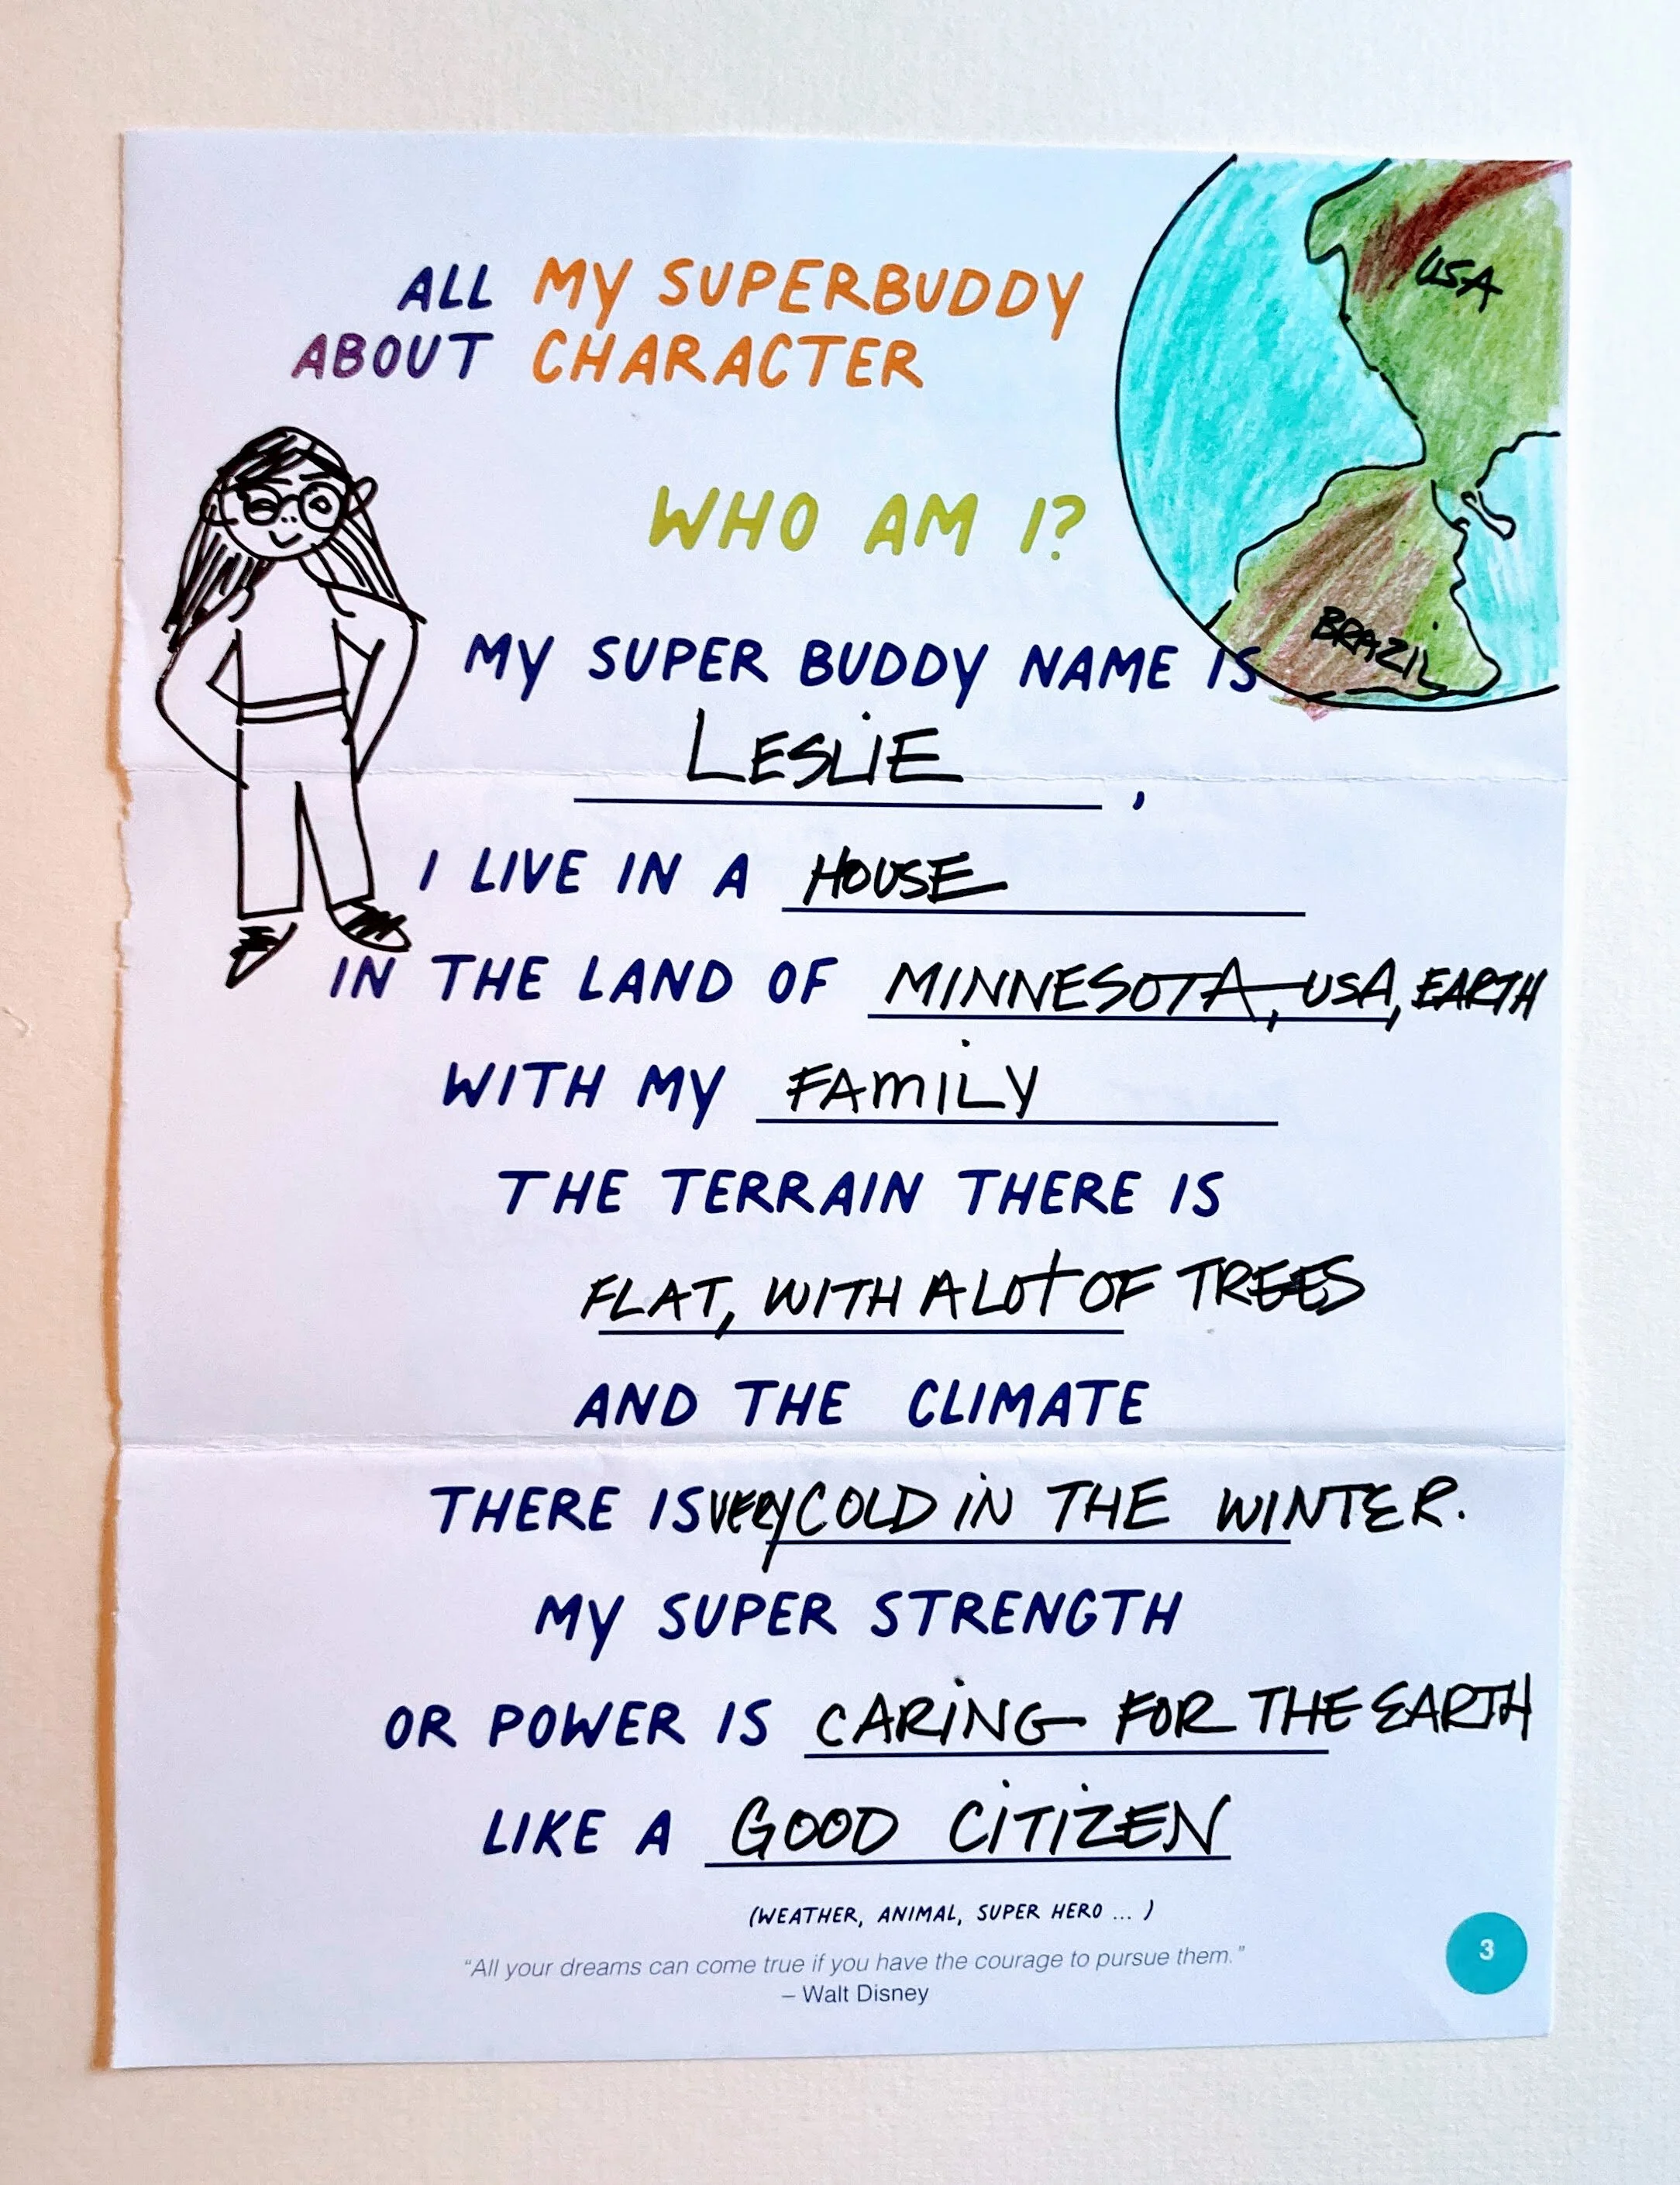 ALL MY SUPERBUDDY
ABOUT CHARACTER
USA
WHO AM I?
BRAZIL
MY SUPER BUDDY NAME IS
LESLIE,
I LIVE IN A HOUSE
IN THE LAND OF MINNESOTA, USA, EARTH
WITH MY FAMILY
THE TERRAIN THERE IS
FLAT, WITH A LOT OF TREES
AND THE CLIMATE
THERE IS VERY COLD IN THE WINTER.
MY SUPER STRENGTH
OR POWER IS CARING FOR THE EARTH
LIKE A GOOD CITIZEN
(WEATHER, ANIMAL, SUPER HERO ... )
"All your dreams can come true if you have the courage to pursue them."
– Walt Disney
3